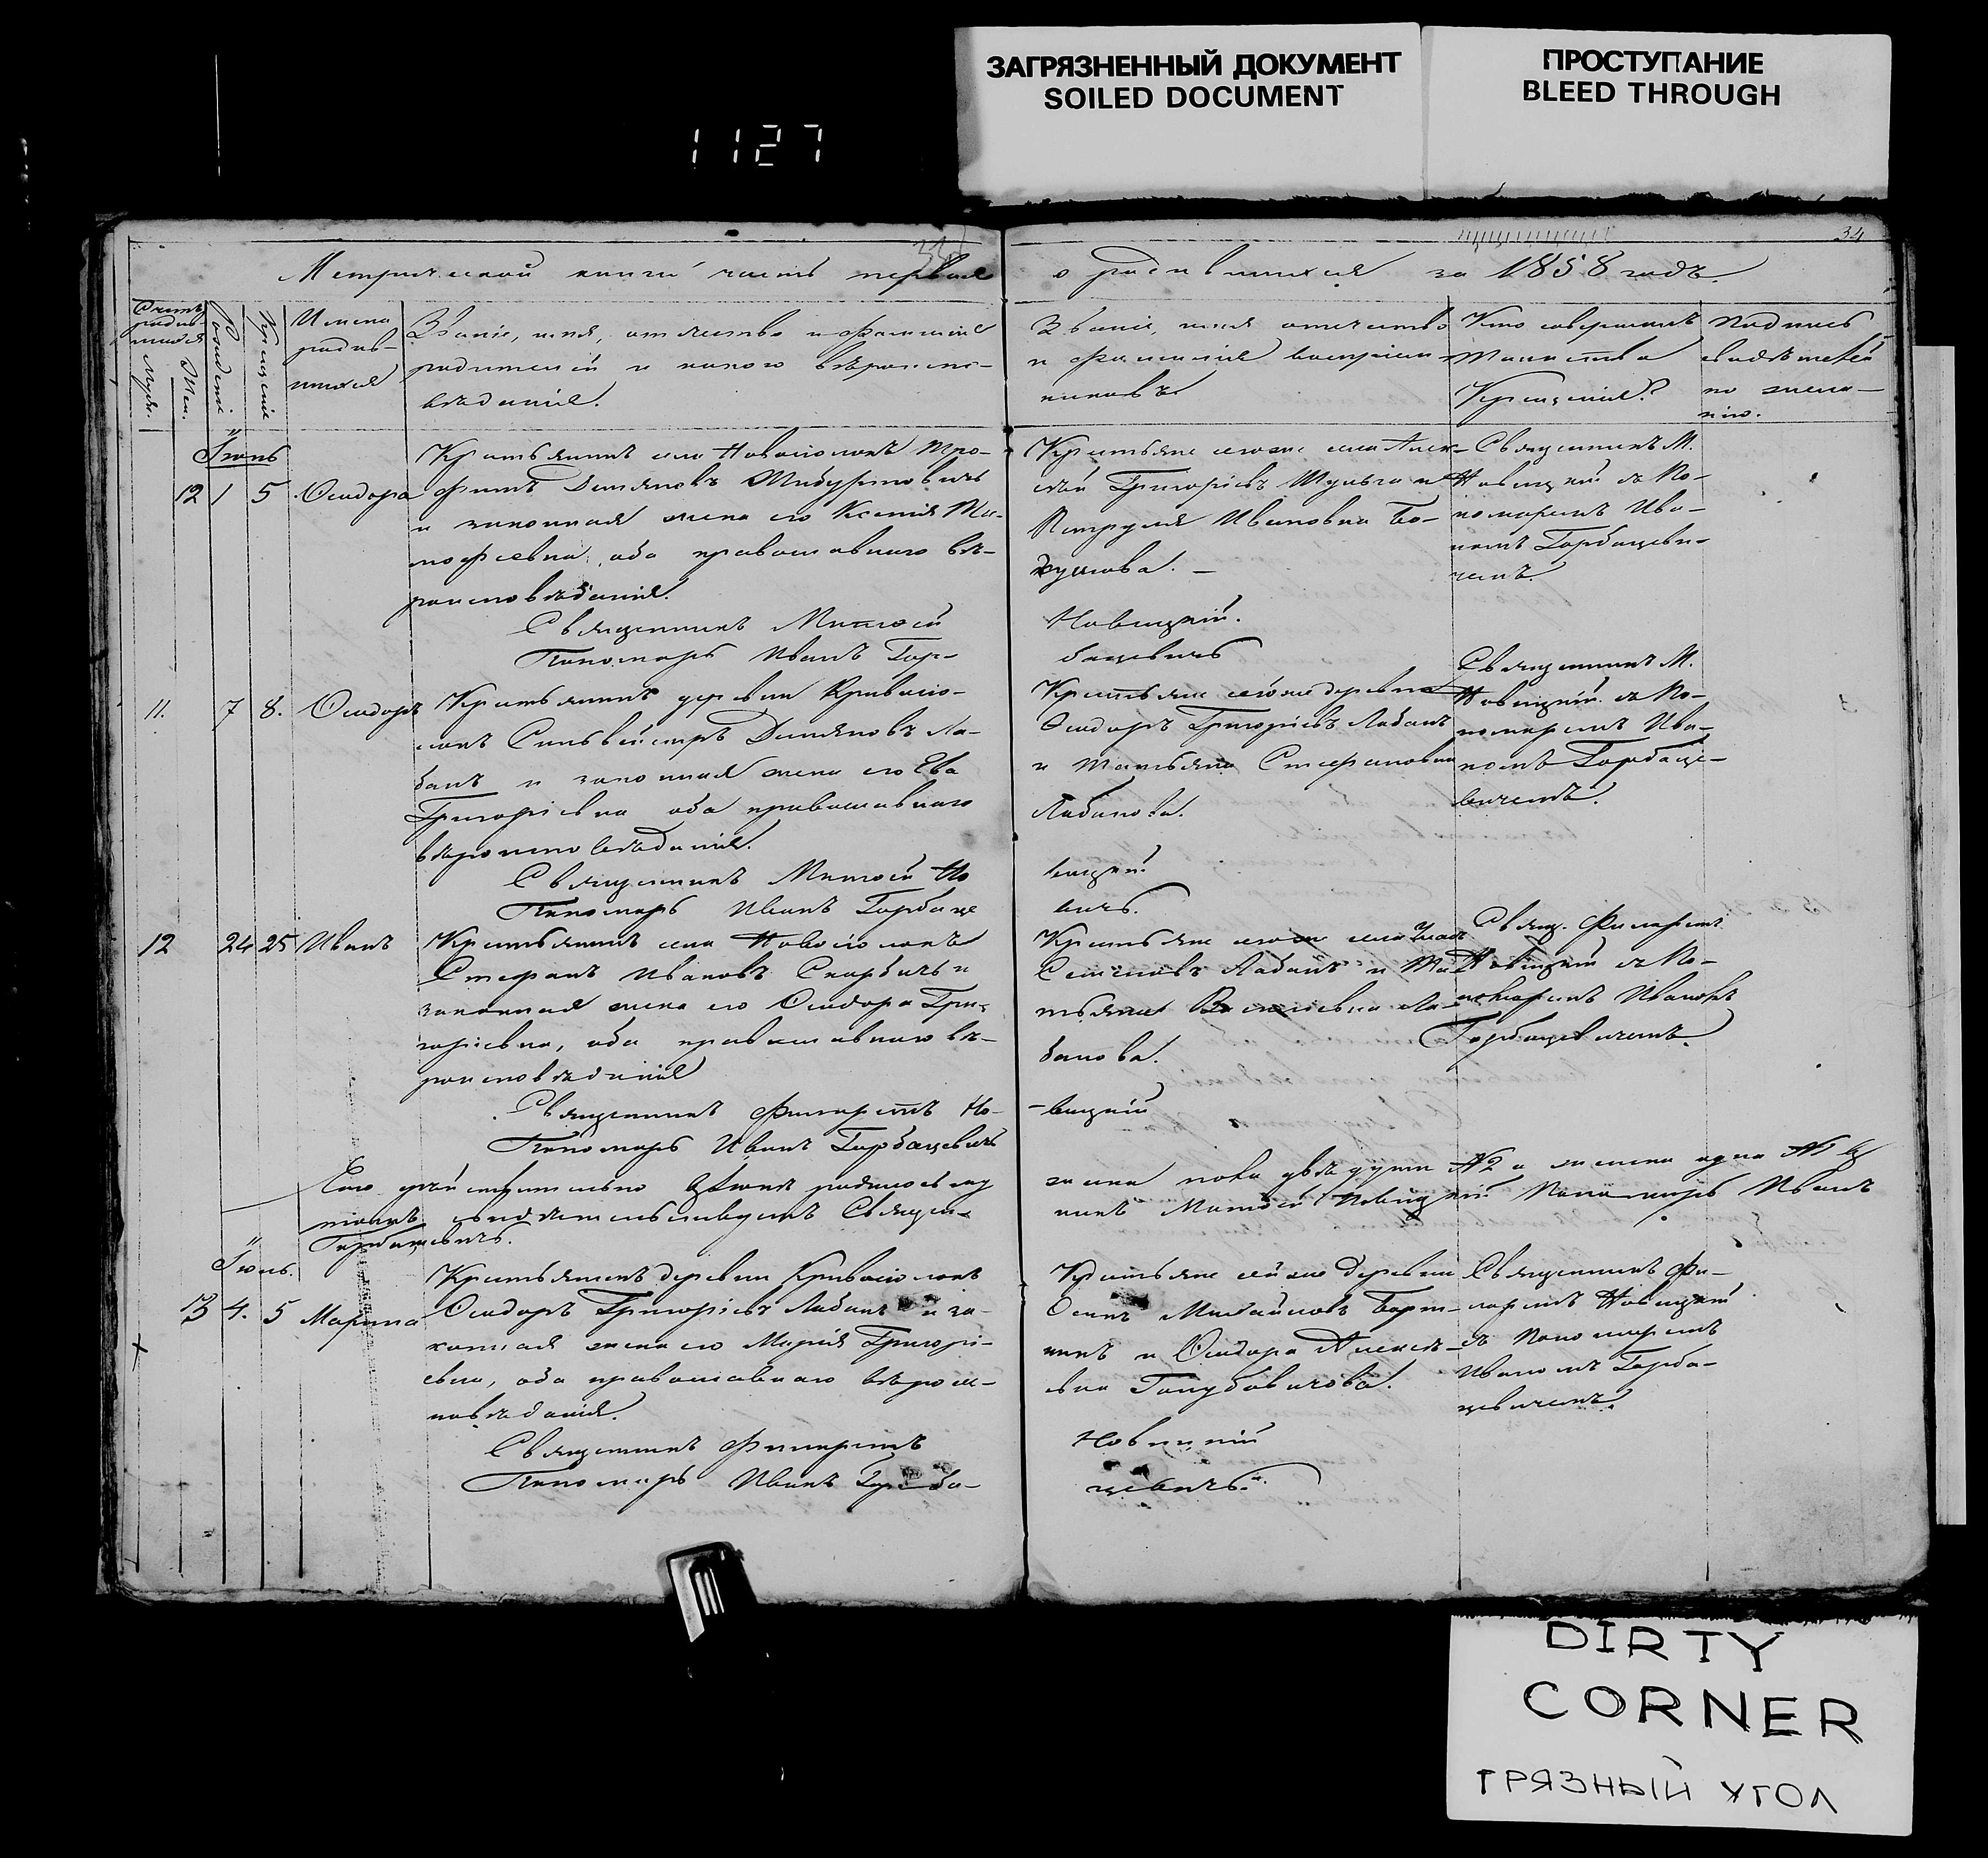 ЗАГРЯЗНЕННЫЙ ДОКУМЕНТ
SOILED DOCUMENT
ПРОСТУПАНИЕ
BLEED THROUGH
1127
34
Метрической книги часть первая
о родившихся за 1858 годъ.
Счетъ родив-
шихся
Муж.
Жен.
Рожденіе
Крещеніе
Имена
родив-
шихся
Званіе, имя, отчество и фамилія
родителей и какого вѣроиспо-
вѣданія.
Званіе, имя отчество
и фамилія воспріем-
никовъ
Кто совершалъ
таинство
Крещенія?
Подпись
свидѣтелей
по жела-
нію.
Іюнь
12 1 5 Феодора
Крестьянинъ села Новоселокъ Тро-
фимъ Демяновъ
и законная жена его Ксенія Ти-
мофеевна, оба православнаго вѣ-
роисповѣданія.
Священникъ Матвей
Пономарь Иванъ Гор-
Крестьяне тогоже села Алек-
сѣй Григорьевъ и
Ивановна Бо-
Новицкій.
бацевичъ
Священникъ М.
Новицкій съ По-
номаремъ Ива-
номъ Горбацеви-
чемъ.
11. 7 8. Феодоръ
Крестьянинъ деревни Кривосе-
локъ Сильвестръ Демяновъ Ла-
банъ и законная жена его Ева
Григорьевна оба православнаго
вѣроисповѣданія.
Священникъ Матвей Но
Пономарь Иванъ Горбаце
Крестьяне тойже деревни
Феодоръ Григорьевъ Лабанъ
и Татьяна Стефановна
Лабанова.
вицкій
вичъ.
Священникъ М.
Новицкій съ По-
номаремъ Ива-
номъ Горбаце-
вичемъ.
12 24 25 Иванъ
Крестьянинъ села Новоселокъ
Стефанъ Ивановъ и
законная жена его Феодора Гри-
горьевна, оба православнаго вѣ-
роисповѣданія
Священникъ Филаретъ Но-
Пономарь Иванъ Горбацевичъ
Крестьяне тогоже села
Семеновъ Лабанъ и Та-
тьяна Васильевна Ла-
банова.
-вицкій
Свящ. Филаретъ
Новицкій съ По-
номаремъ Иваномъ
Горбацевичемъ.
Что дѣйствительно Іюня родилось муж
скаго пола двѣ души №2 и женска одна №1 въ
томъ свидѣтельствуемъ Священ-
никъ Матвей Новицкій Пономарь Иванъ
Горбацевичъ.
Іюль.
13 4. 5 Марина
Крестьянинъ деревни Кривоселокъ
Феодоръ Григорьевъ Лабанъ и за-
конная жена его Марія Григорі-
евна, оба православнаго вѣроис-
повѣданія.
Священникъ Филаретъ
Пономарь Иванъ Горба-
Крестьяне тойже деревни
Осипъ Михайловъ
и Феодора Алексѣ-
евна Голубовичова.
Новицкій
цевичъ.
Священникъ Фи-
ларетъ Новицкій
съ Пономаремъ
Иваномъ Горба-
цевичемъ.
DIRTY
CORNER
ГРЯЗНЫЙ УГОЛ